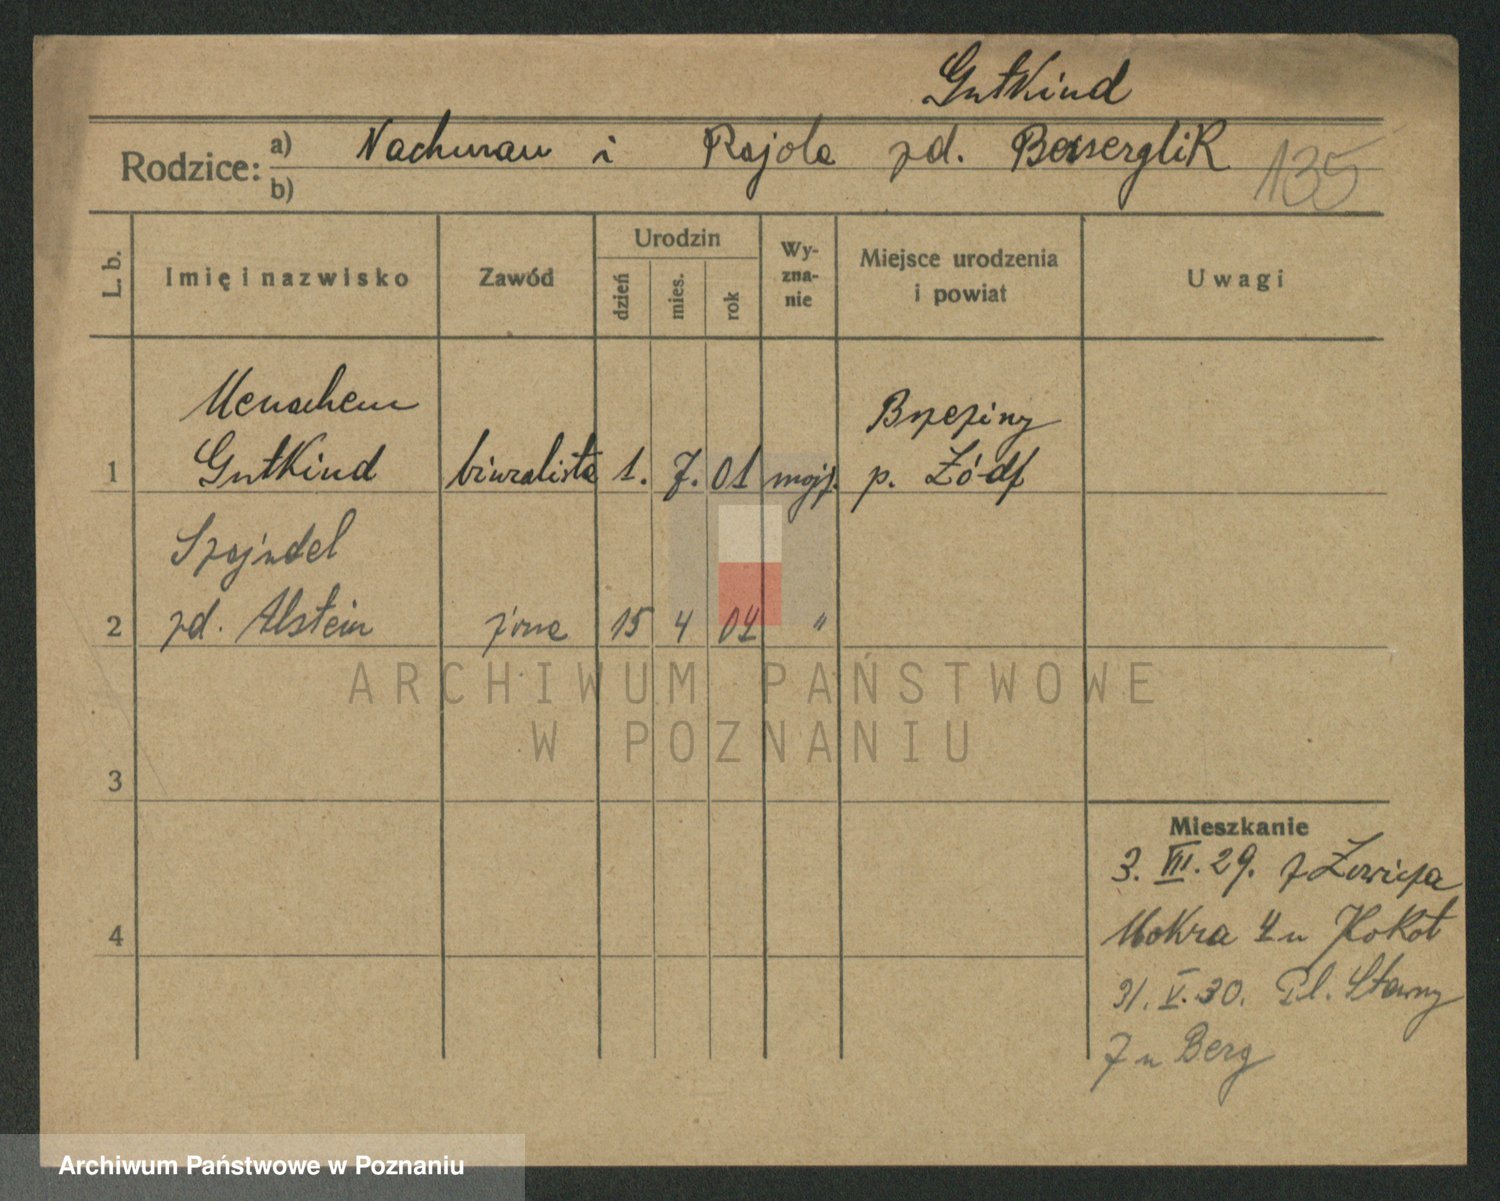 Gutkind
Rodzice: a) Nachman i Rajola zd.
b)
135
L. b. Imię i nazwisko Zawód Urodzin dzień mies. rok Wy-zna-nie Miejsce urodzenia i powiat Uwagi
Menachem Brzeziny
1 Gutkind biuralista 1. 7. 01 mojż. p. Łódź
Szajndel
2 zd. Alstein żona 15 4 04 "
ARCHIWUM PAŃSTWOWE
W POZNANIU
3
Mieszkanie
3. VIII. 29. z Łowicza
4
Mokra 4 u Kokot
31. V. 30. Pl. Stawny
7 u Berg
Archiwum Państwowe w Poznaniu